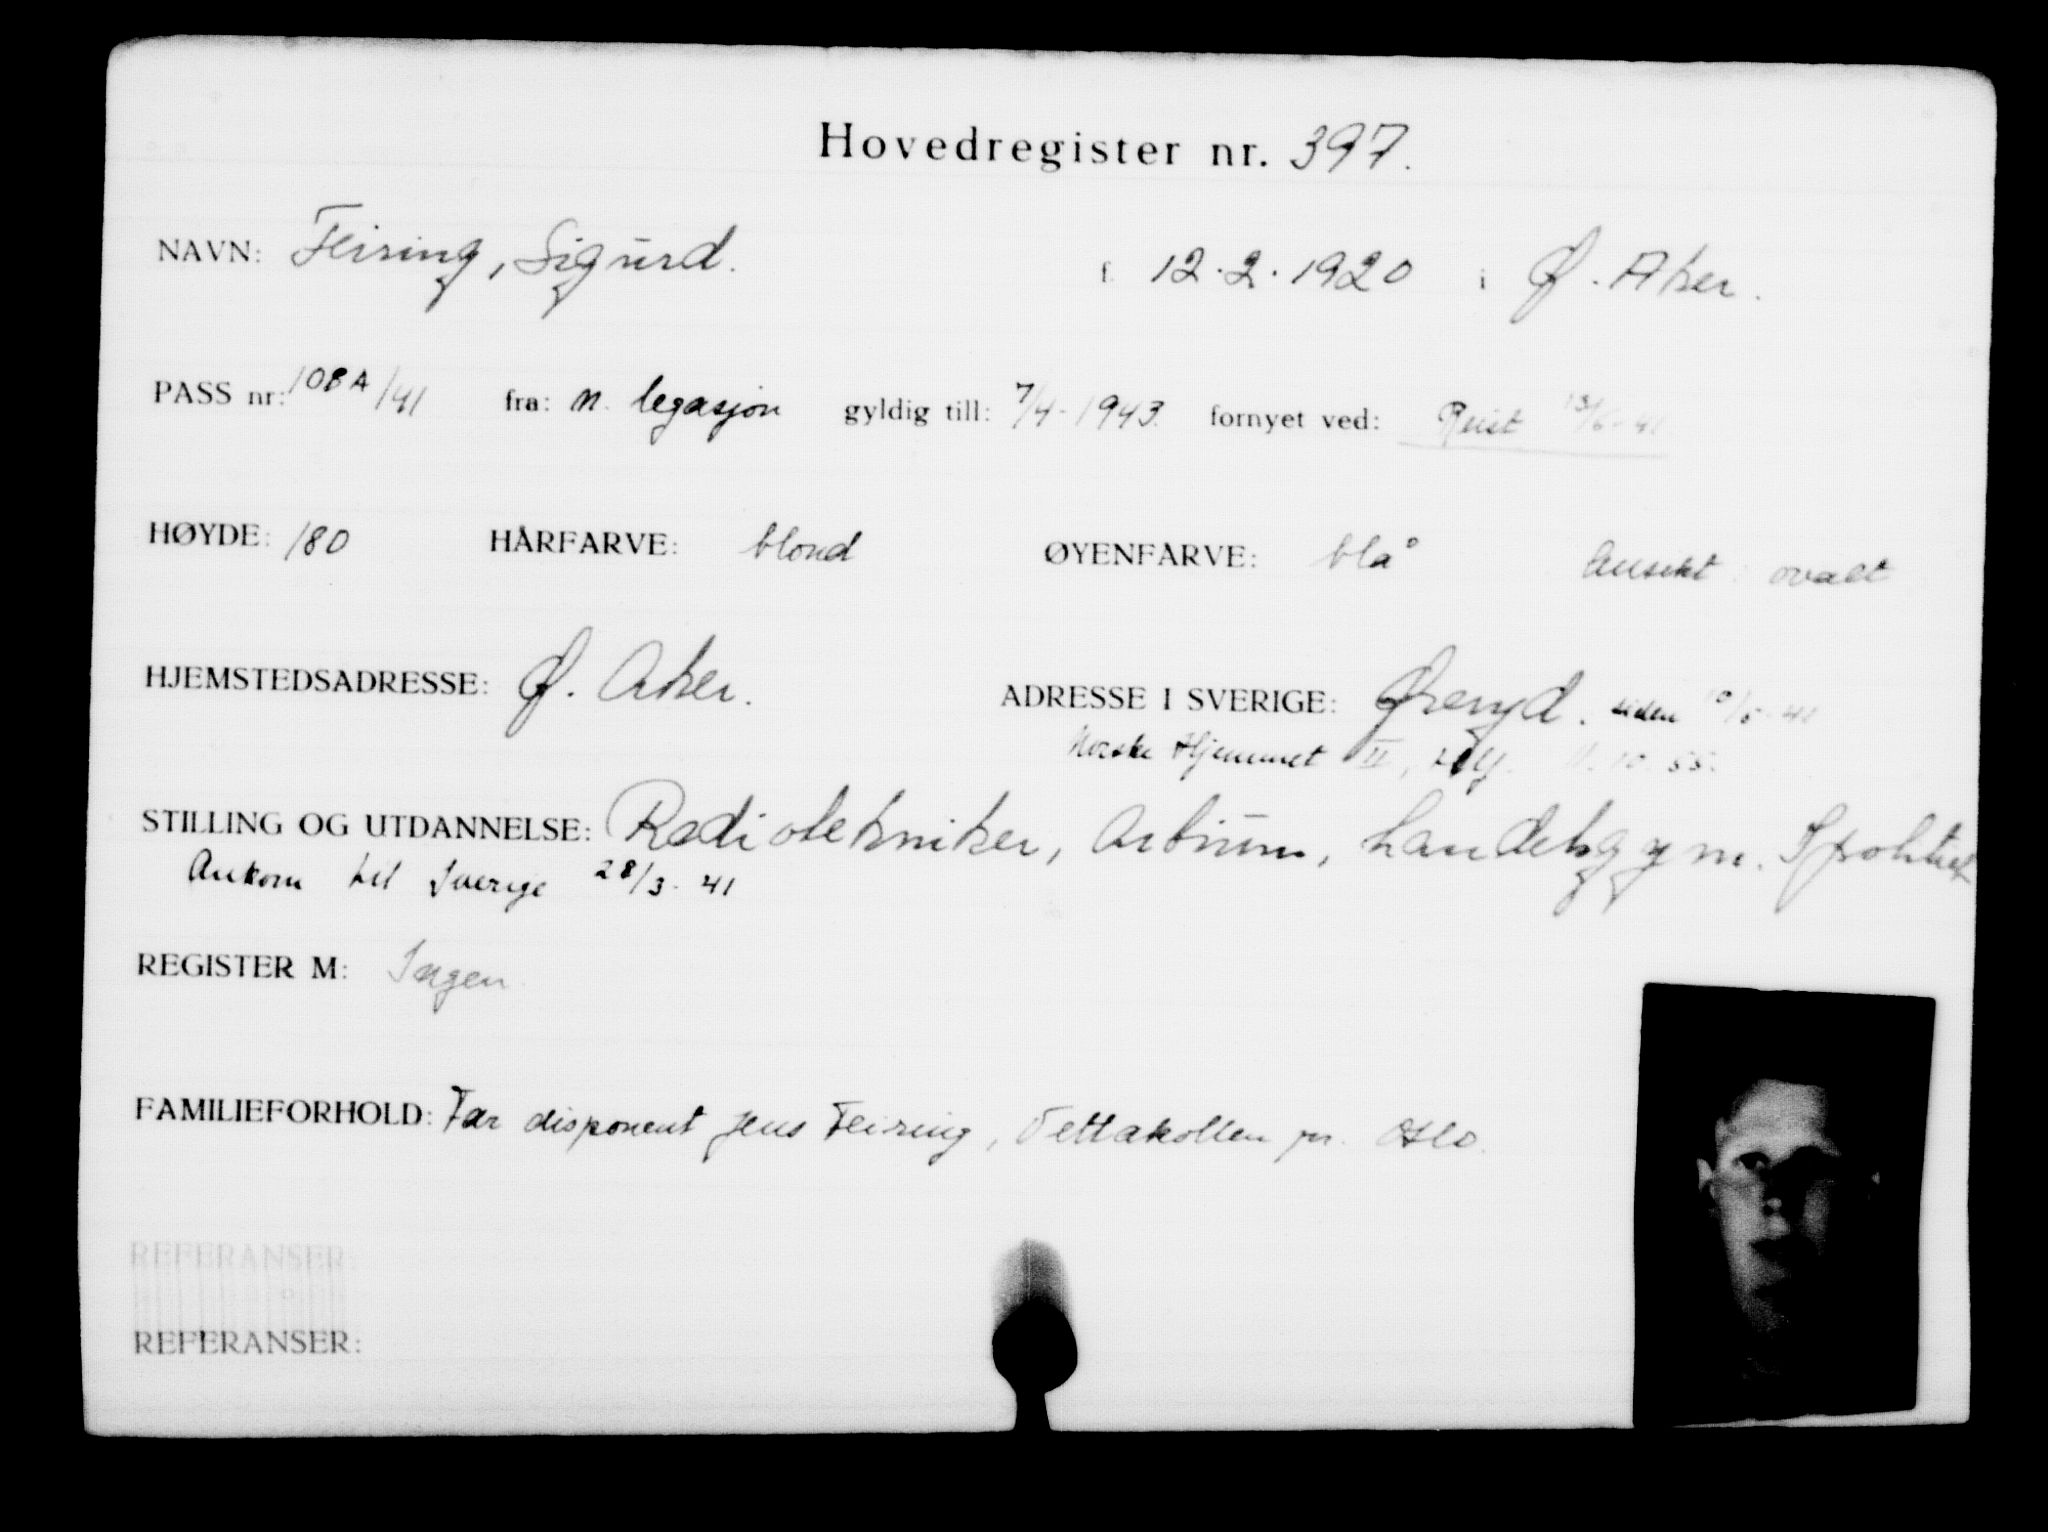 Hovedregister nr. 397.
NAVN: Feiring, Sigurd. f. 12.2.1920 i Ø. Aker.
PASS nr: 108A/41 fra: n. legasjon gyldig till: 7/4-1943. fornyet ved: Reist 13/6-41
HØYDE: 180 HÅRFARVE: blond ØYENFARVE: blå Ansikt: ovalt
HJEMSTEDSADRESSE: Ø. Aker. ADRESSE I SVERIGE: Øreryd. siden
Norske Hjemmet II,
STILLING OG UTDANNELSE: Radiotekniker, Artium, Landetsgym.
Ankom til Sverige 28/3-41
REGISTER M: Ingen.
FAMILIEFORHOLD: Far disponent Jens Feiring, Vettakollen pr. Oslo.
REFERANSER:
REFERANSER: